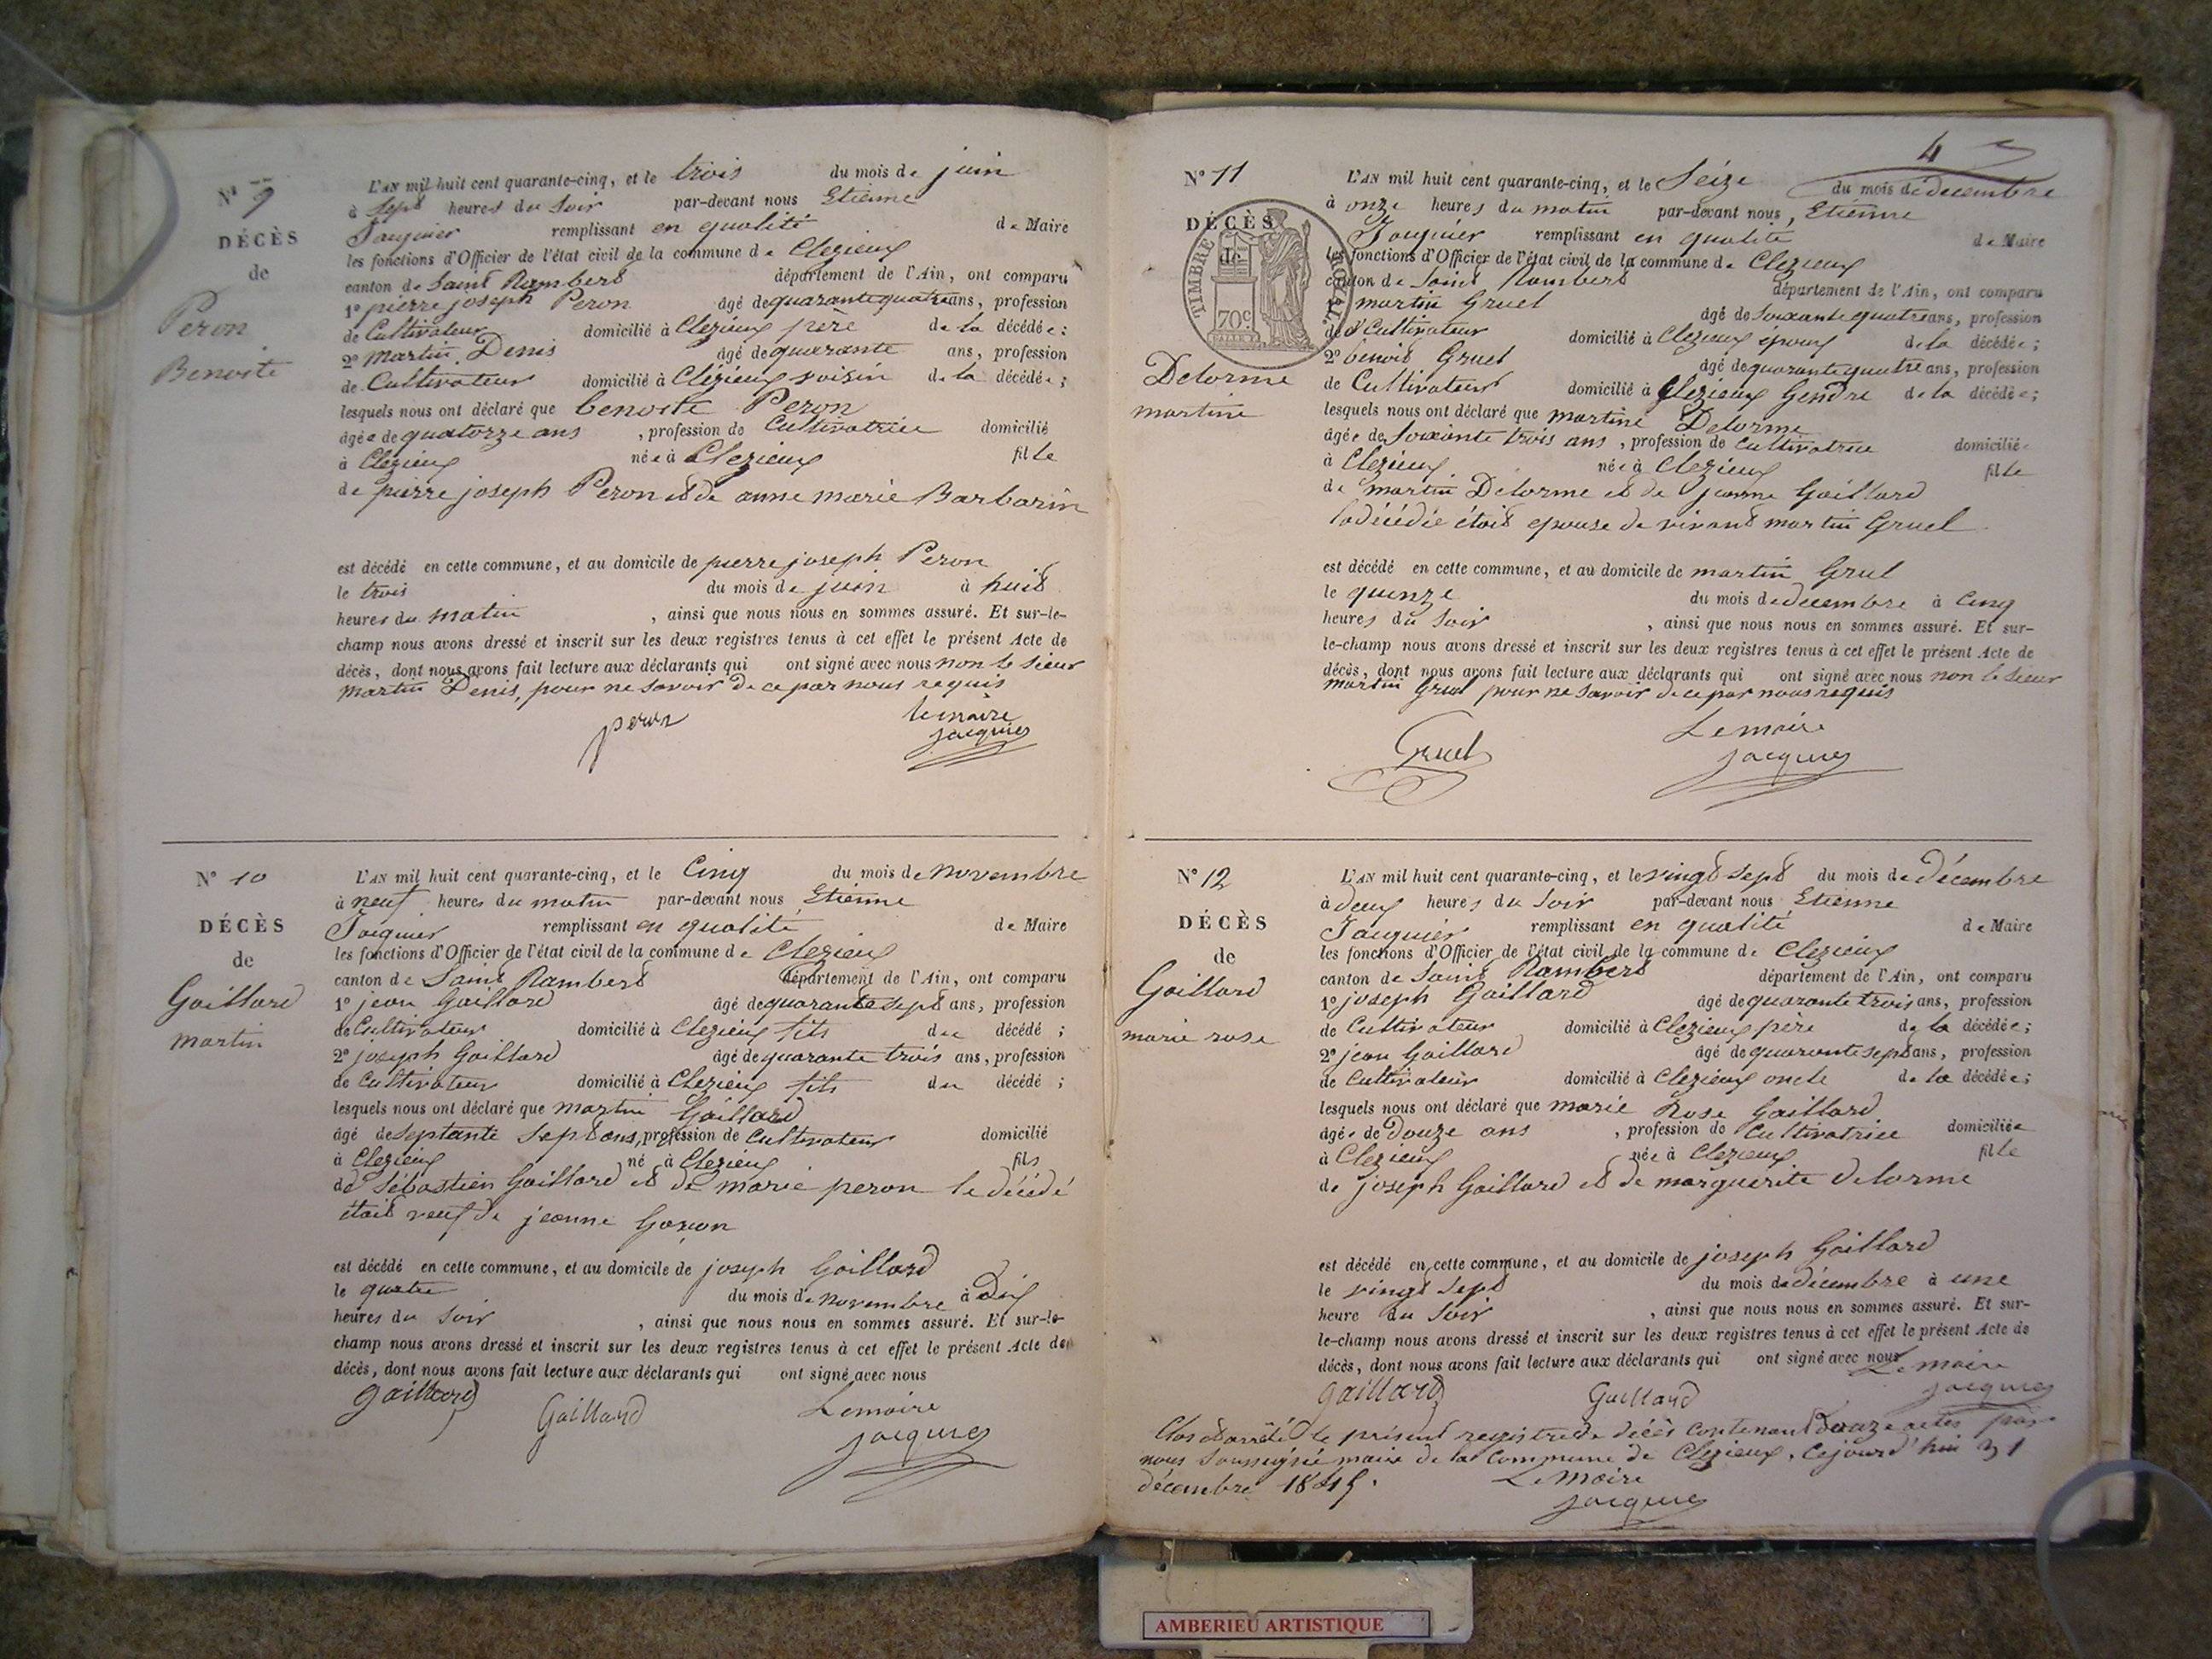 N° 9
DÉCÈS
de
Peron
Benoite
L'AN mil huit cent quarante-cinq, et le trois du mois de juin
à sept heures du soir par-devant nous Etienne
Jacquier remplissant en qualité de Maire
les fonctions d'Officier de l'état civil de la commune de Clezieux
canton de Saint Rambert département de l'Ain, ont comparu
1° pierre joseph Peron âgé de quarante quatre ans, profession
de Cultivateur domicilié à Clezieux père de la décédée;
2° Martin Denis âgé de quarante ans, profession
de Cultivateur domicilié à Clézieux voisin de la décédée;
lesquels nous ont déclaré que benoite Peron
âgée de quatorze ans, profession de Cultivatrice domicilié
à Clezieux née à Clezieux fille
de pierre joseph Peron et de anne marie Barbarin
est décédé en cette commune, et au domicile de pierre joseph Peron
le trois du mois de juin à huit
heures du matin, ainsi que nous nous en sommes assuré. Et sur-le-
champ nous avons dressé et inscrit sur les deux registres tenus à cet effet le présent Acte de
décès, dont nous avons fait lecture aux déclarants qui ont signé avec nous non le sieur
martin Denis, pour ne savoir de ce par nous requis
peron
le maire
jacquier
N° 10
DÉCÈS
de
Gaillard
martin
L'AN mil huit cent quarante-cinq, et le Cinq du mois de novembre
à neuf heures du matin par-devant nous Etienne
Jacquier remplissant en qualité de Maire
les fonctions d'Officier de l'état civil de la commune de Clezieux
canton de Saint Rambert département de l'Ain, ont comparu
1° jean Gaillard âgé de quarante sept ans, profession
de Cultivateur domicilié à Clezieux fils du décédé;
2° joseph Gaillard âgé de quarante trois ans, profession
de Cultivateur domicilié à Clezieux fils du décédé;
lesquels nous ont déclaré que martin Gaillard
âgé de septante sept ans, profession de Cultivateur domicilié
à Clezieux né à Clezieux fils
de Sébastien Gaillard et de marie peron le décédé
était veuf de jeanne
est décédé en cette commune, et au domicile de joseph Gaillard
le quatre du mois de novembre à Dix
heures du soir, ainsi que nous nous en sommes assuré. Et sur-le-
champ nous avons dressé et inscrit sur les deux registres tenus à cet effet le présent Acte de
décès, dont nous avons fait lecture aux déclarants qui ont signé avec nous
gaillard
Gaillard
Le maire
jacquier
4
N° 11
DÉCÈS
de
TIMBRE ROYAL
70c
Delorme
martine
L'AN mil huit cent quarante-cinq, et le Seize du mois de decembre
à onze heures du matin par-devant nous, Etienne
Jacquier remplissant en qualité de Maire
les fonctions d'Officier de l'état civil de la commune de Clezieux
canton de Saint Rambert département de l'Ain, ont comparu
1° martin Gruel âgé de soixante quatre ans, profession
de Cultivateur domicilié à Clezieux époux de la décédée;
2° benoit Gruel âgé de quarante quatre ans, profession
de Cultivateur domicilié à Clezieux Gendre de la décédée;
lesquels nous ont déclaré que martine Delorme
âgée de Soixante trois ans, profession de Cultivatrice domicilié
à Clezieux née à Clezieux fille
de martin Delorme et de jeanne Gaillard
la décédée étoit epouse de vivant martin Gruel
est décédé en cette commune, et au domicile de martin Gruel
le quinze du mois de decembre à Cinq
heures du soir, ainsi que nous nous en sommes assuré. Et sur-
le-champ nous avons dressé et inscrit sur les deux registres tenus à cet effet le présent Acte de
décès, dont nous avons fait lecture aux déclarants qui ont signé avec nous non le sieur
martin Gruel pour ne savoir de ce par nous requis
Gruel
Le maire
jacquier
N° 12
DÉCÈS
de
Gaillard
marie rose
L'AN mil huit cent quarante-cinq, et le vingt sept du mois de Décembre
à deux heures du soir par-devant nous Etienne
Jacquier remplissant en qualité de Maire
les fonctions d'Officier de l'état civil de la commune de Clezieux
canton de Saint Rambert département de l'Ain, ont comparu
1° joseph Gaillard âgé de quarante trois ans, profession
de Cultivateur domicilié à Clezieux père de la décédée;
2° jean Gaillard âgé de quarante sept ans, profession
de Cultivateur domicilié à Clezieux oncle de la décédée;
lesquels nous ont déclaré que marie Rose Gaillard
âgée de douze ans, profession de Cultivatrice domiciliée
à Clezieux née à Clezieux fille
de joseph Gaillard et de marguerite delorme
est décédé en cette commune, et au domicile de joseph Gaillard
le vingt sept du mois de décembre à une
heure du soir, ainsi que nous nous en sommes assuré. Et sur-
le-champ nous avons dressé et inscrit sur les deux registres tenus à cet effet le présent Acte de
décès, dont nous avons fait lecture aux déclarants qui ont signé avec nous
Le maire
jacquier
gaillard
Gaillard
Clos et arrêté le présent registre de décès contenant Douze actes par
nous soussigné maire de la Commune de Clezieux, Cejourd'hui 31
décembre 1845.
Le Maire
jacquier
AMBERIEU ARTISTIQUE